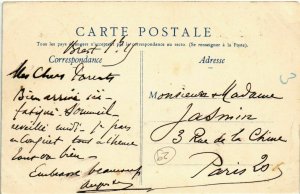 CARTE POSTALE
Tous les pays étrangers n'acceptent pas la correspondance au recto. (Se renseigner à la Poste).
Correspondance
Adresse
Brest
Mes Chers Parents
Bien arrivé ici
fatigué. Sommeil
réveillé midi.
tout va bien
Embrasse beaucoup
Monsieur & Madame
Jasmin
3 Rue de la Chine
Paris 20